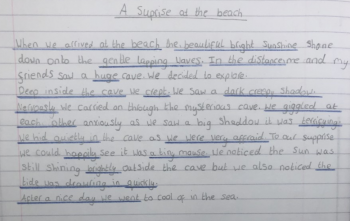 A Suprise at the beach
When we arrived at the beach the beautiful bright sunshine shone
down onto the gentle lapping waves. In the distance me and my
friends saw a huge cave. We decided to explore.
Deep inside the cave we crept. We saw a dark creepy shadow.
Nervously we carried on though the mysterious cave. We giggled at
each other anxiously as we saw a big shaddow it was terrifying.
We hid quietly in the cave as we were very afraid. To our suprise
we could happily see it was a tiny mouse. We noticed the sun was
still shining brightly outside the cave but we also noticed the
tide was drawing in quickly.
After a nice day we went to cool of in the sea.